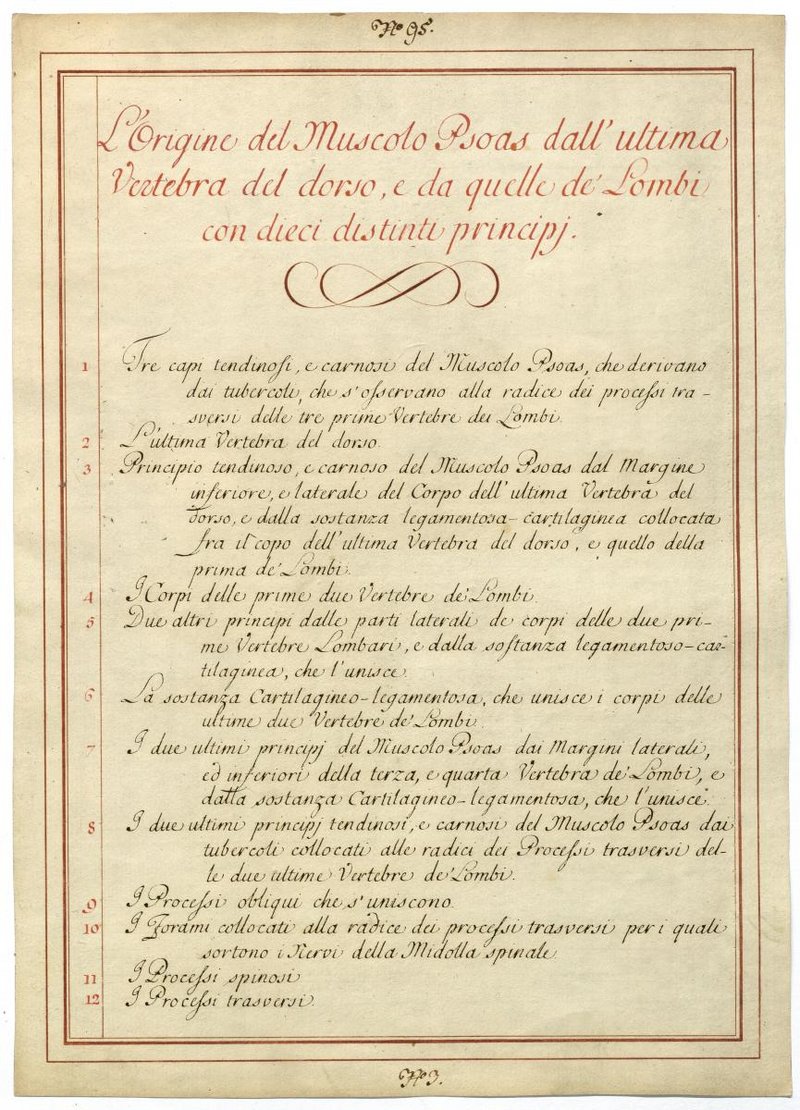 No 95.
L'Origine del Muscolo Psoas dall'ultima
Vertebra del dorso, e da quelle de' Lombi
con dieci distinti principj.
1 Tre capi tendinosi, e carnosi del Muscolo Psoas, che derivano
dai tubercoli, che s'osservano alla radice dei processi tra-
sversi delle tre prime Vertebre dei Lombi.
2 L'ultima Vertebra del dorso.
3 Principio tendinoso, e carnoso del Muscolo Psoas dal Margine
inferiore, e laterale del Corpo dell'ultima Vertebra del
dorso, e dalla sostanza legamentosa-cartilaginea collocata
fra il copo dell'ultima Vertebra del dorso, e quello della
prima de' Lombi.
4 I Corpi delle prime due Vertebre de' Lombi.
5 Due altri principi dalle parti laterali de corpi delle due pri-
me Vertebre Lombari, e dalla sostanza legamentoso-car-
tilaginea, che l'unisce.
6 La sostanza Cartilagineo-legamentosa, che unisce i corpi delle
ultime due Vertebre de' Lombi.
7 I due ultimi principj del Muscolo Psoas dai Margini laterali,
ed inferiori della terza, e quarta Vertebra de' Lombi, e
dalla sostanza Cartilagineo-legamentosa, che l'unisce.
8 I due ultimi principj tendinosi, e carnosi del Muscolo Psoas dai
tubercoli collocati alle radici dei Processi trasversi del-
le due ultime Vertebre de' Lombi.
9 I Processi obliqui che s'uniscono.
10 I Forami collocati alla radice dei processi trasversi per i quali
sortono i Nervi della Midolla spinale.
11 I Processi spinosi
12 I Processi trasversi.
No 3.